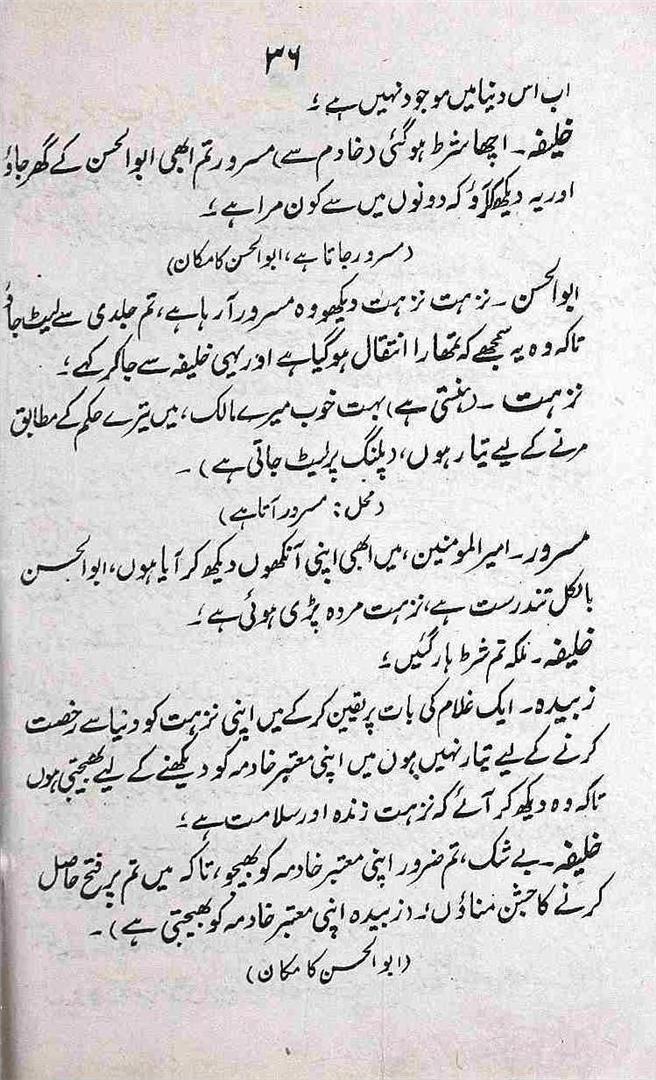 ۳۶
اب اس دنیا میں موجود نہیں ہے ؛
خلیفہ ۔ اچھا شرط ہوگئی (خادم سے) مسرور تم ابھی ابوالحسن کے گھر جاؤ
اور یہ دیکھ کر آؤ کہ دونوں میں سے کون مرا ہے ؛
(مسرور جاتا ہے، ابوالحسن کا مکان)
ابوالحسن ۔ نزہت نزہت دیکھو وہ مسرور آرہا ہے، تم جلدی سے لیٹ جاؤ
تاکہ وہ یہ سمجھے کہ تمھارا انتقال ہوگیا ہے اور یہی خلیفہ سے جاکر کہے ؛
نزہت ۔ (ہنستی ہے) بہت خوب میرے مالک، میں تیرے حکم کے مطابق
مرنے کے لیے تیار ہوں، (پلنگ پر لیٹ جاتی ہے) ۔
(محل : مسرور آتا ہے)
مسرور ۔ امیر المومنین، میں ابھی اپنی آنکھوں دیکھ کر آیا ہوں، ابوالحسن
بالکل تندرست ہے، نزہت مردہ پڑی ہوئی ہے ؛
خلیفہ ۔ ملکہ تم شرط ہار گئیں ؛
زبیدہ ۔ ایک غلام کی بات پر یقین کرکے میں اپنی نزہت کو دنیا سے رخصت
کرنے کے لیے تیار نہیں ہوں میں اپنی معتبر خادمہ کو دیکھنے کے لیے بھیجتی ہوں
تاکہ وہ دیکھ کر آئے کہ نزہت زندہ اور سلامت ہے ؛
خلیفہ ۔ بے شک، تم ضرور اپنی معتبر خادمہ کو بھیجو، تاکہ میں تم پر فتح حاصل
کرنے کا جشن مناؤں ؛ (زبیدہ اپنی معتبر خادمہ کو بھیجتی ہے) ۔
(ابوالحسن کا مکان)